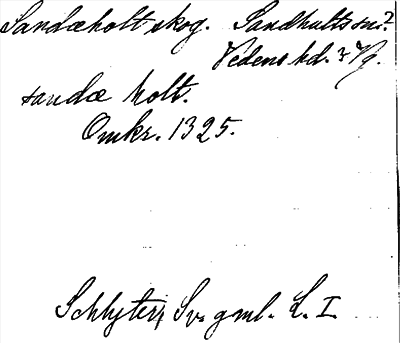 Sandæholt skog. Sandhults sn.?
Vedens hd. Vg.
sandæ holt.
Omkr. 1325.
Schlyter, Sv. gml. L. I.